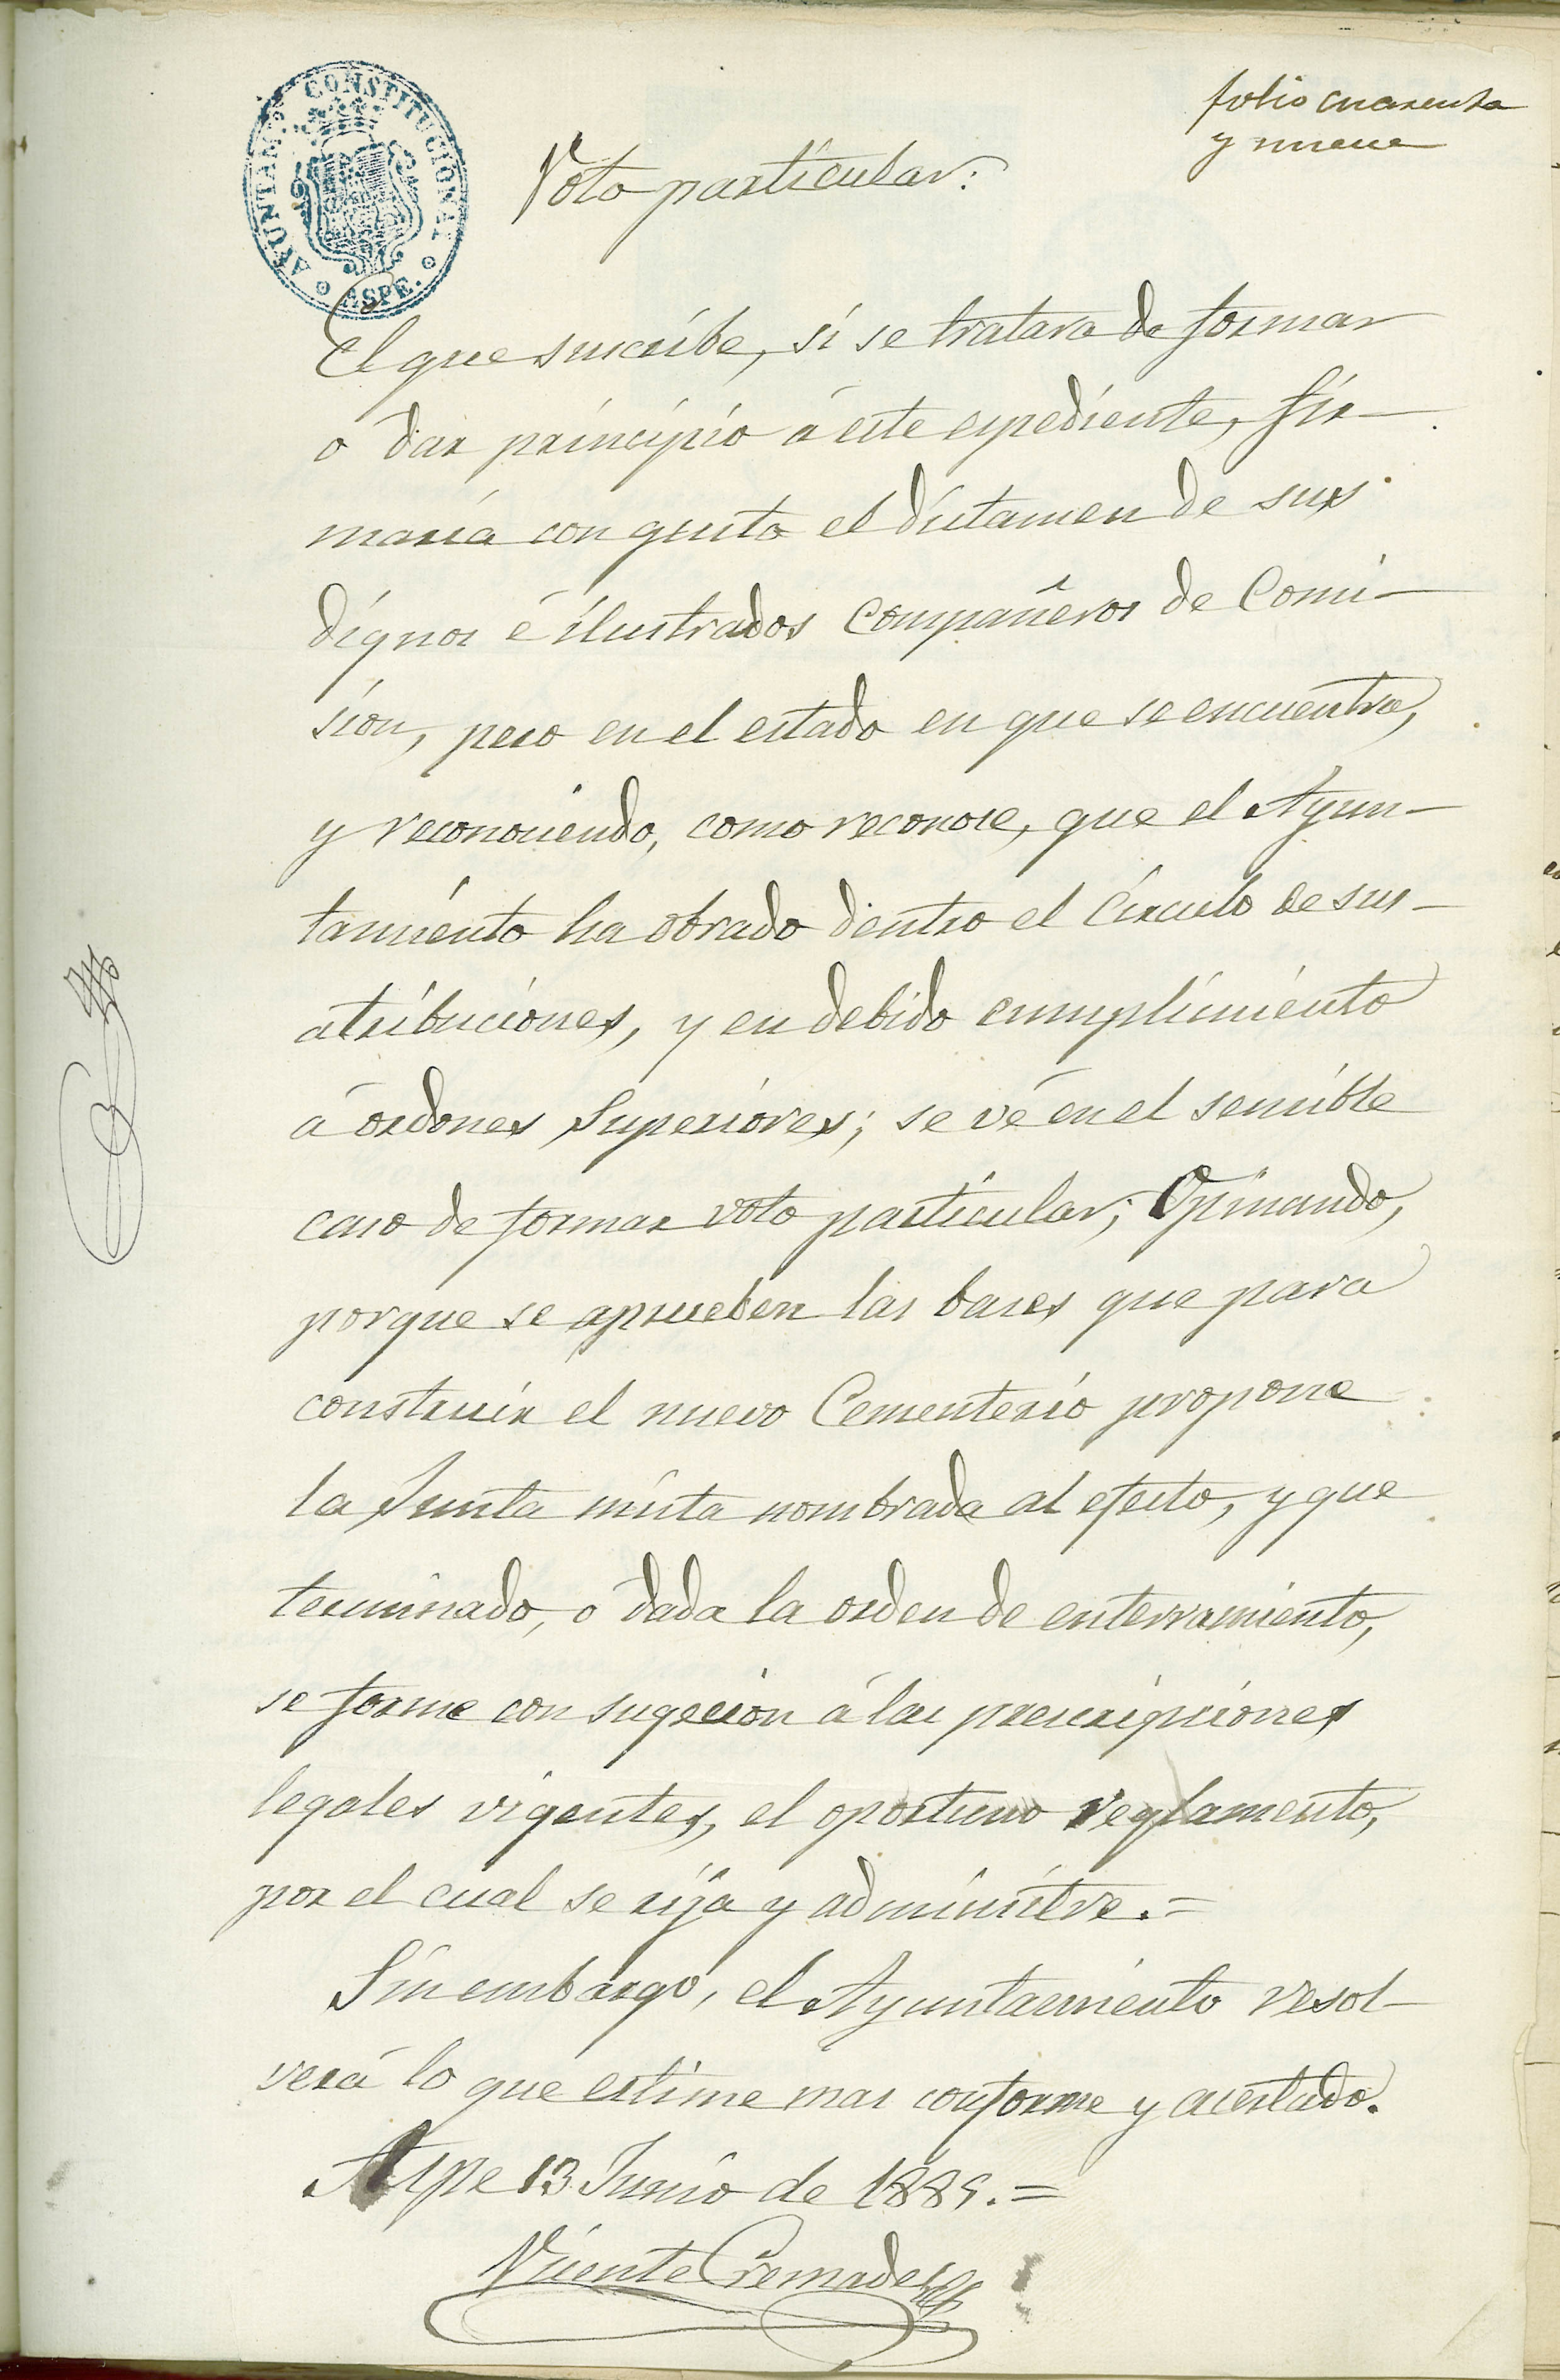 folio cuarenta
y nueve
AYUNTAM.TO CONSTITUCIONAL
ASPE.
Voto particular:
El que suscribe, si se tratara de formar
o dar principio á este espediente, fir-
maria con gusto el dictamen de sus
dignos é ilustrados compañeros de Comi-
sion, pero en el estado en que se encuentra,
y reconociendo, como reconoce, que el Ayun-
tamiento ha obrado dentro el Círculo de sus
atribuciones, y en debido cumplimiento
á ordones Superiores; se vé en el sensible
caso de formar voto particular; Opinando,
porque se aprueben las bases que para
construir el nuevo Cementerio propone
la Junta mista nombrada al efecto, y que
terminado, o dada la orden de enterramiento,
se forme con sugecion á las prescripciones
legales vigentes, el oportuno reglamento,
por el cual se rija y administre.=
Sin embargo, el Ayuntamiento resol-
verá lo que estime mas conforme y acertado.
Aspe 13 Junio de 1885.=
Vicente Cremades